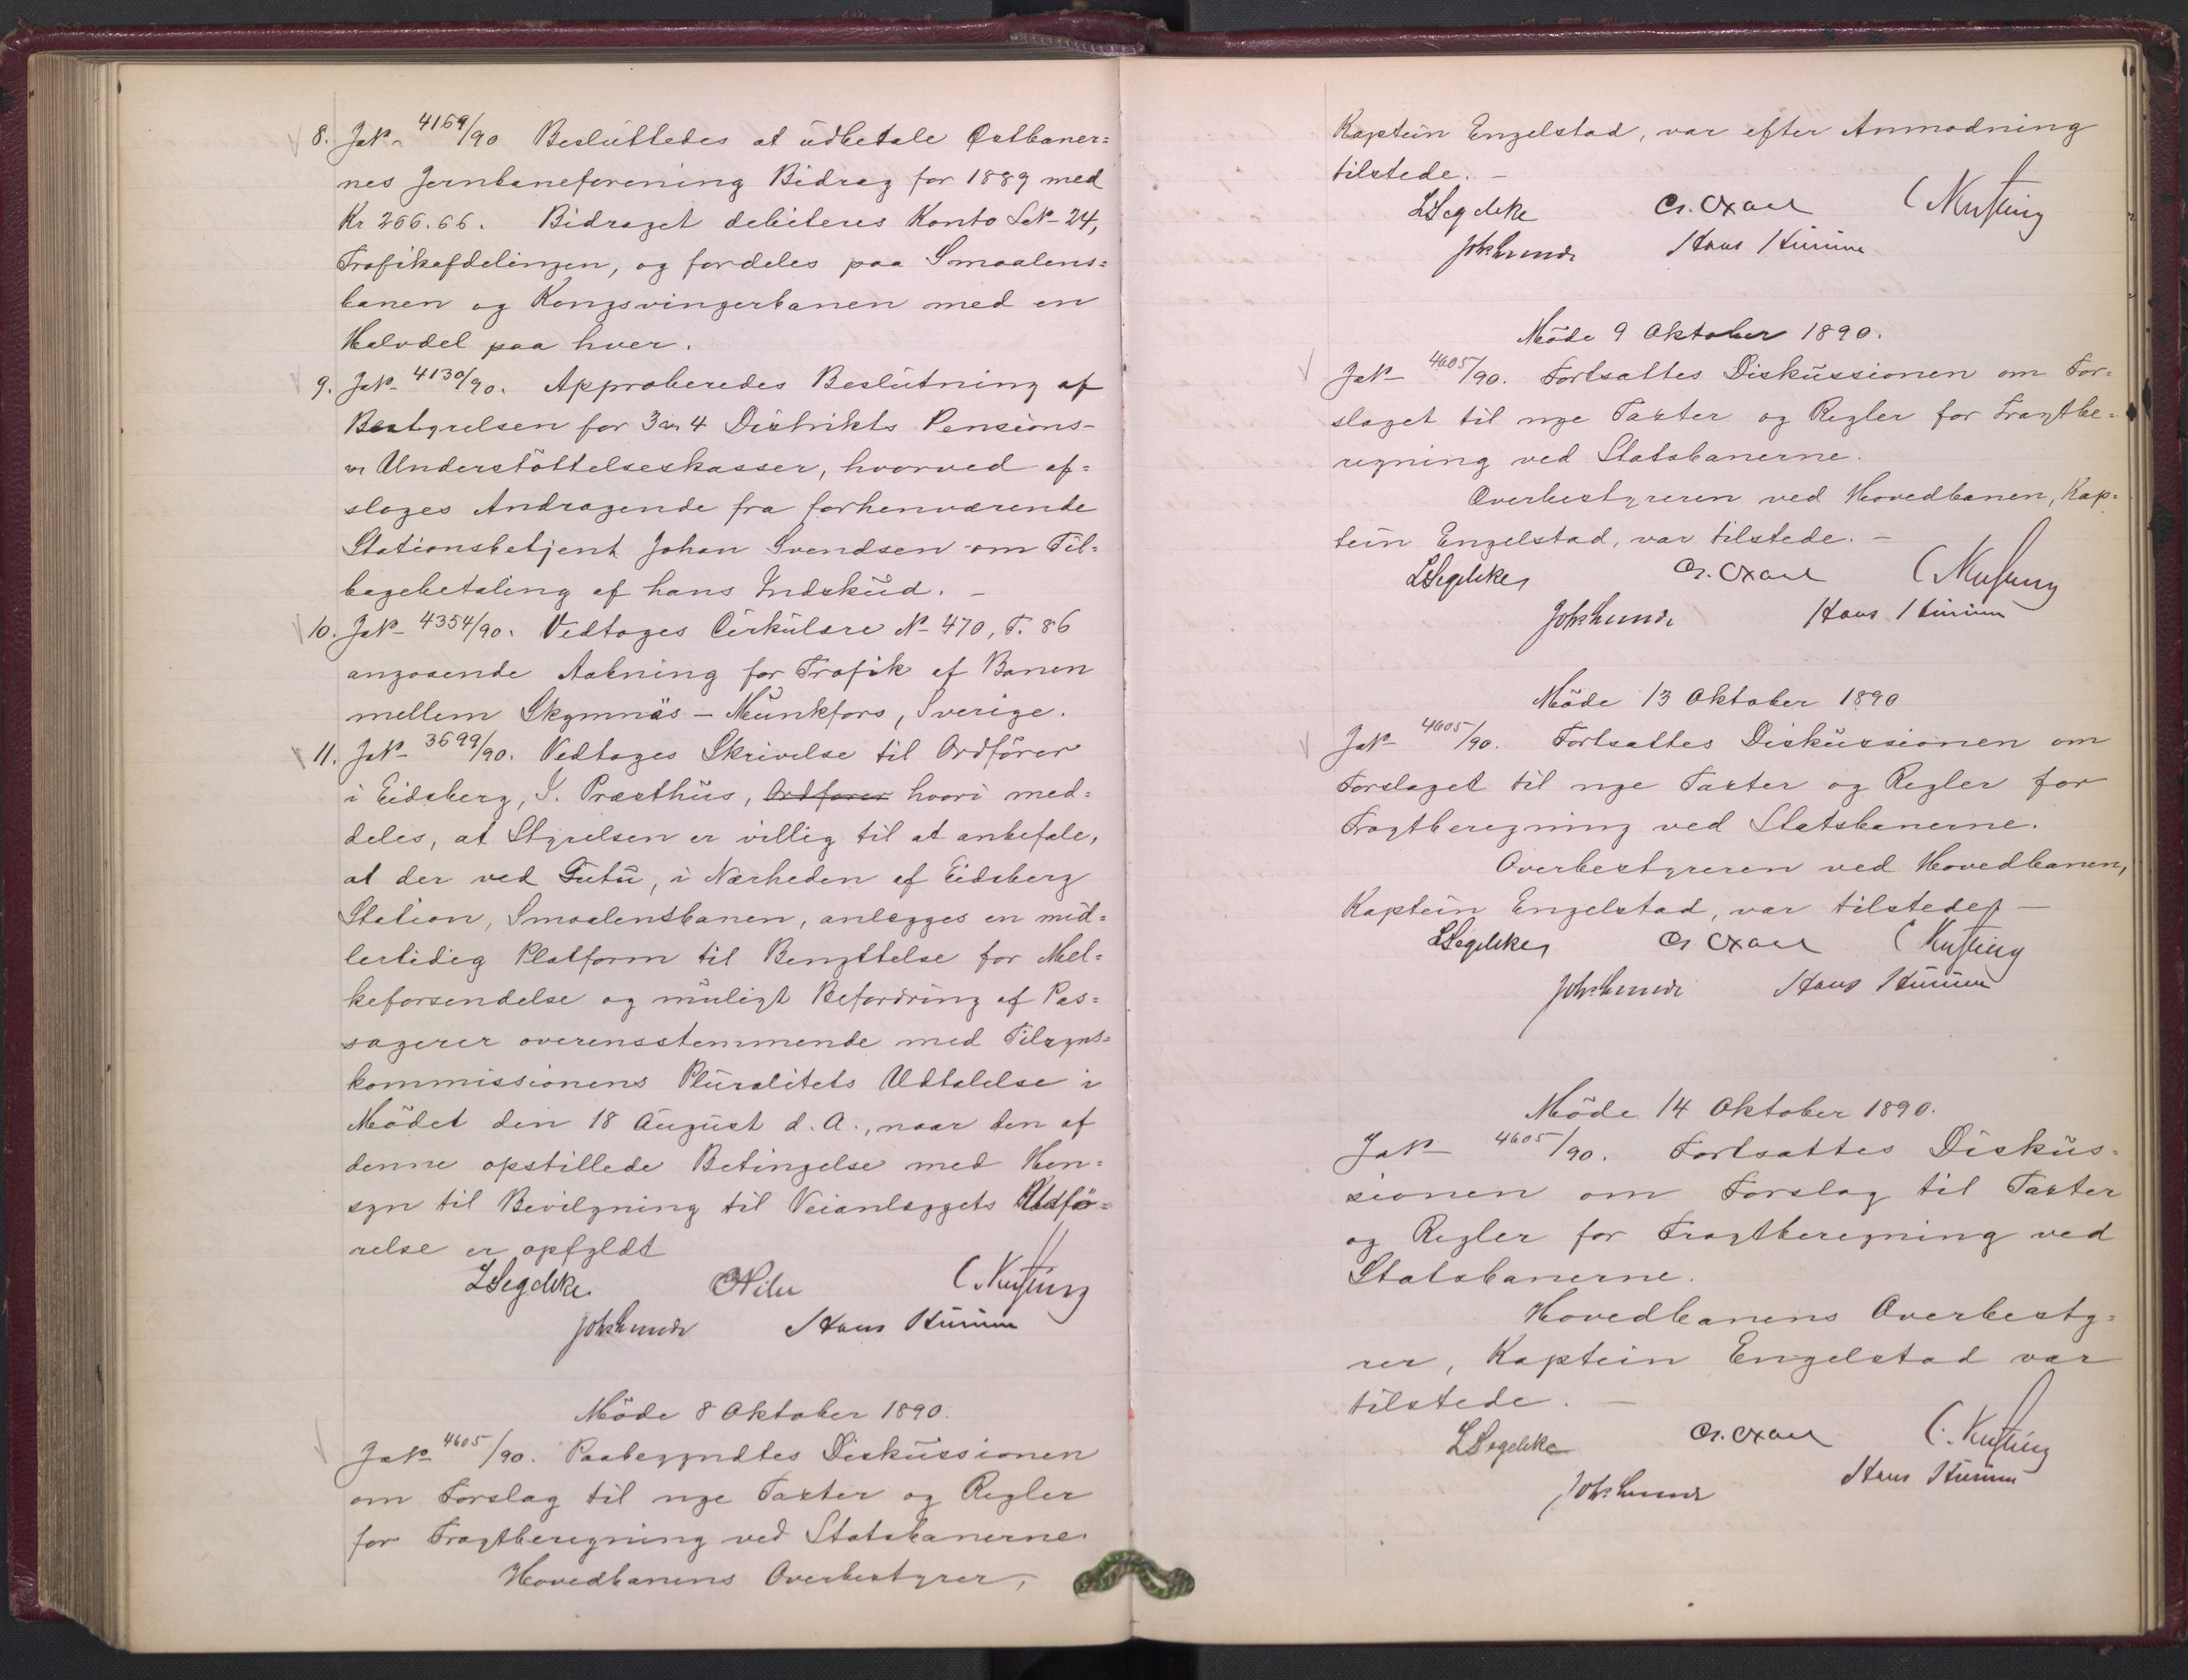 8. JNo 4169/90 Besluttedes at udbetale Østbaner=
nes Jernbaneforening Bidrag for 1889 med
Kr 266.66. Bidraget debiteres Konto LNo 24,
Trafikafdelingen, og fordeles paa Smaalens=
banen og Kongsvingerbanen med en
Halvdel paa hver.
9. JNo 4130/90. Approberedes Beslutning af
Bestyrelsen for 3 og 4 Distrikts Pensions-
og Understöttelseskasser, hvorved af=
slages Andragende fra forhenværende
Stationsbetjent Johan Svendsen om Til=
bagebetaling af hans Indskud. –
10. JNo 4354/90. Vedtages Cirkulære No 470, T. 86
angaaende Aabning for Trafik af Banen
mellem Skymnäs – Munkfors, Sverige.
11. JNo 3699/90. Vedtages Skrivelse til Ordförer
i Eidsberg, I. Præsthus, Ordfører hvori med=
deles, at Styrelsen er villig til at anbefale,
at der ved Gutu, i Nærheden af Eidsberg
Station, Smaalensbanen, anlægges en mid=
lertidig Platform til Benyttelse for Mel=
keforsendelse og muligt Befordring af Pas=
sagerer overensstemmende med Tilsyns=
kommissionens Pluralitets Udtalelse i
Mödet den 18 August d. A., naar den af
denne opstillede Betingelse med Hen=
syn til Bevilgning til Veianlæggets Udfö=
relse er opfyldt
LSegelcke
Joh. Lunde Hans Kiær
Möde 8 Oktober 1890.
JNo 4605/90. Paabegyndtes Diskussionen
om Forslag til nye Taxter og Regler
for Fragtberegning ved Statsbanerne.
Hovedbanens Overbestyrer,
Kaptein Engelstad, var efter Anmodning
tilstede. –
LSegelcke
Joh. Lunde
Möde 9 Oktober 1890.
JNo 4605/90. Fortsattes Diskussionen om For=
slaget til nye Taxter og Regler for Fragtbe=
regning ved Statsbanerne.
Overbestyreren ved Hovedbanen, Kap=
tein Engelstad, var tilstede. –
LSegelcke
Joh. Lunde
Möde 13 Oktober 1890
JNo 4605/90. Fortsattes Diskussionen om
Forslaget til nye Taxter og Regler for
Fragtberegning ved Statsbanerne.
Overbestyreren ved Hovedbanen,
Kaptein Engelstad, var tilstede. –
LSegelcke
Joh. Lunde
Möde 14 Oktober 1890.
JNo 4605/90. Fortsattes Diskus=
sionen om Forslag til Taxter
og Regler for Fragtberegning ved
Statsbanerne.
Hovedbanens Overbesty=
rer, Kaptein Engelstad var
tilstede. –
LSegelcke
Joh. Lunde